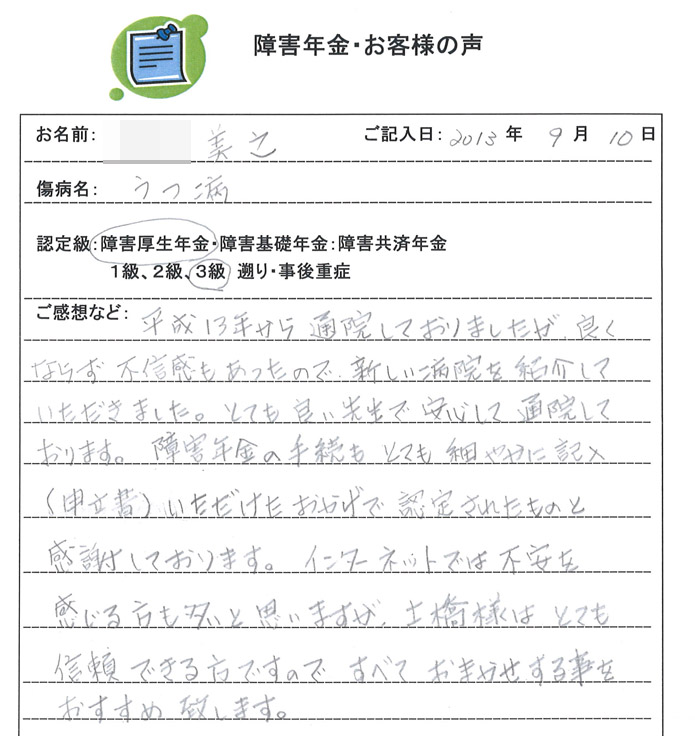 障害年金・お客様の声
お名前: 美之 ご記入日: 2013 年 9 月 10 日
傷病名: うつ病
認定級:障害厚生年金・障害基礎年金:障害共済年金
1級、2級、3級 遡り・事後重症
ご感想など: 平成13年から通院しておりましたが、良く
ならず不信感もあったので、新しい病院を紹介して
いただきました。とても良い先生で安心して通院して
おります。障害年金の手続もとても細やかに記入
(申立書)いただけたおかげで認定されたものと
感謝しております。インターネットでは不安を
感じる方も多いと思いますが、土橋様はとても
信頼できる方ですので すべておまかせする事を
おすすめ致します。